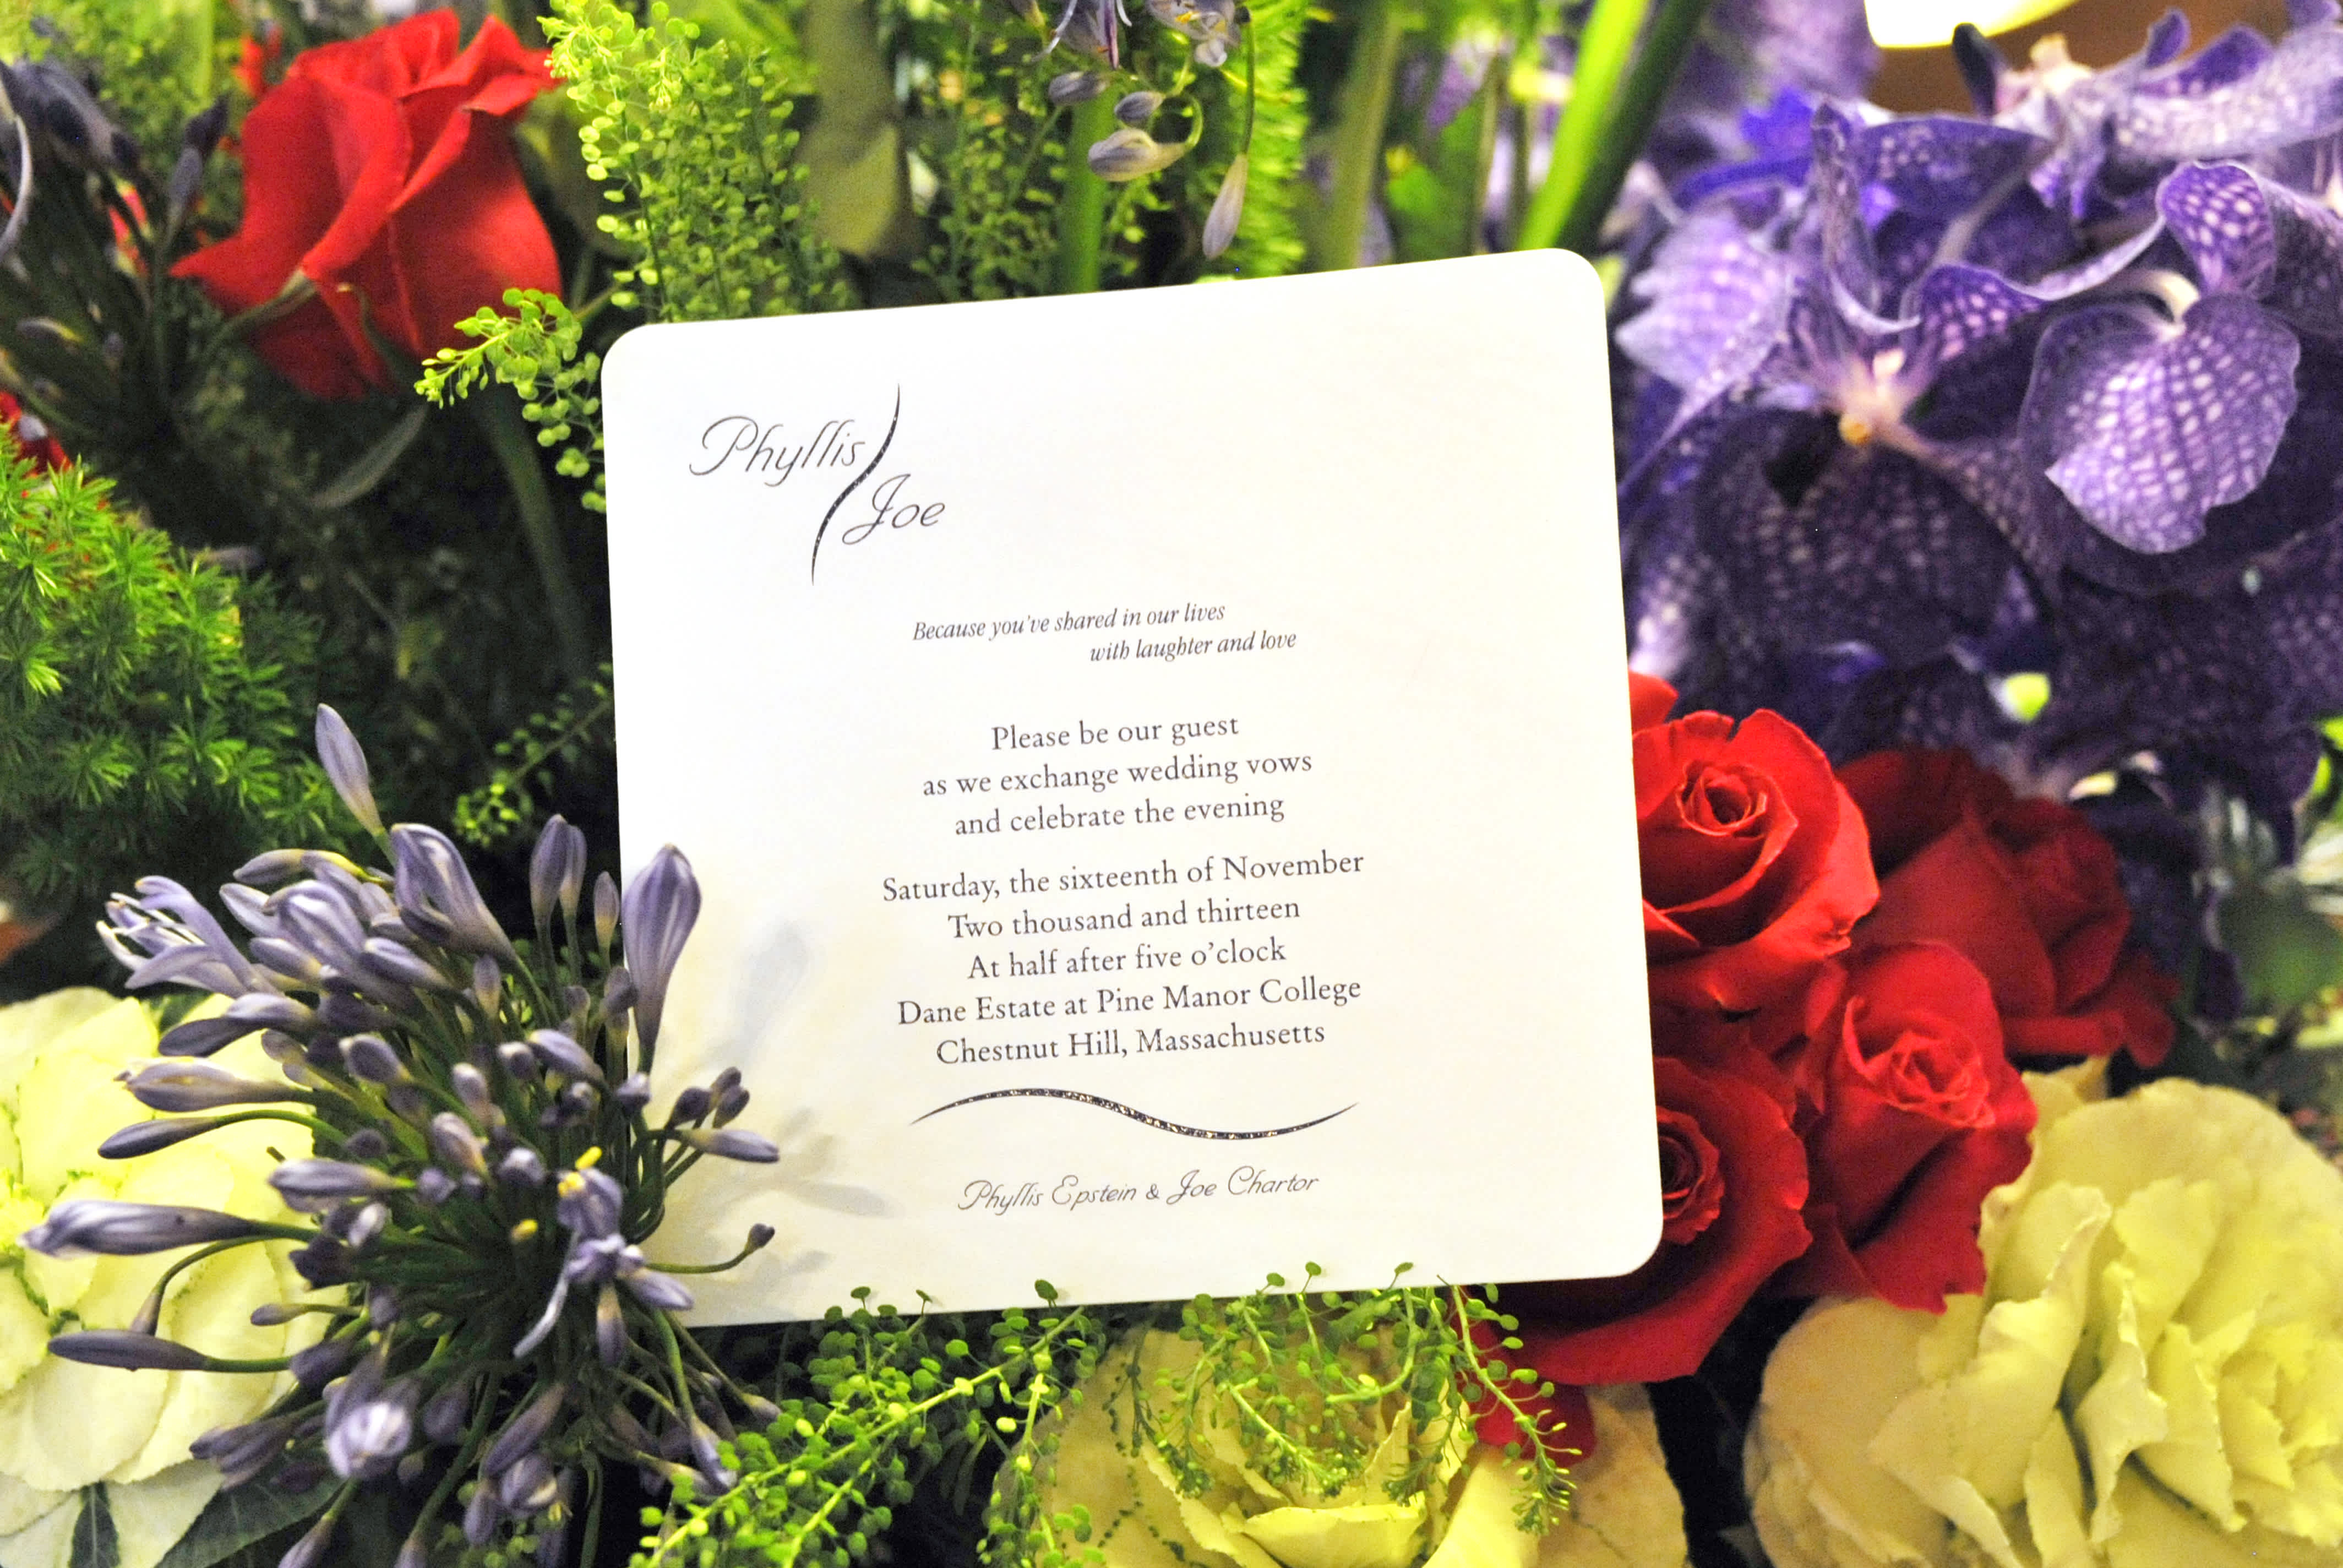 Phyllis
Joe
Because you've shared in our lives
with laughter and love
Please be our guest
as we exchange wedding vows
and celebrate the evening
Saturday, the sixteenth of November
Two thousand and thirteen
At half after five o'clock
Dane Estate at Pine Manor College
Chestnut Hill, Massachusetts
Phyllis Epstein & Joe Chartor